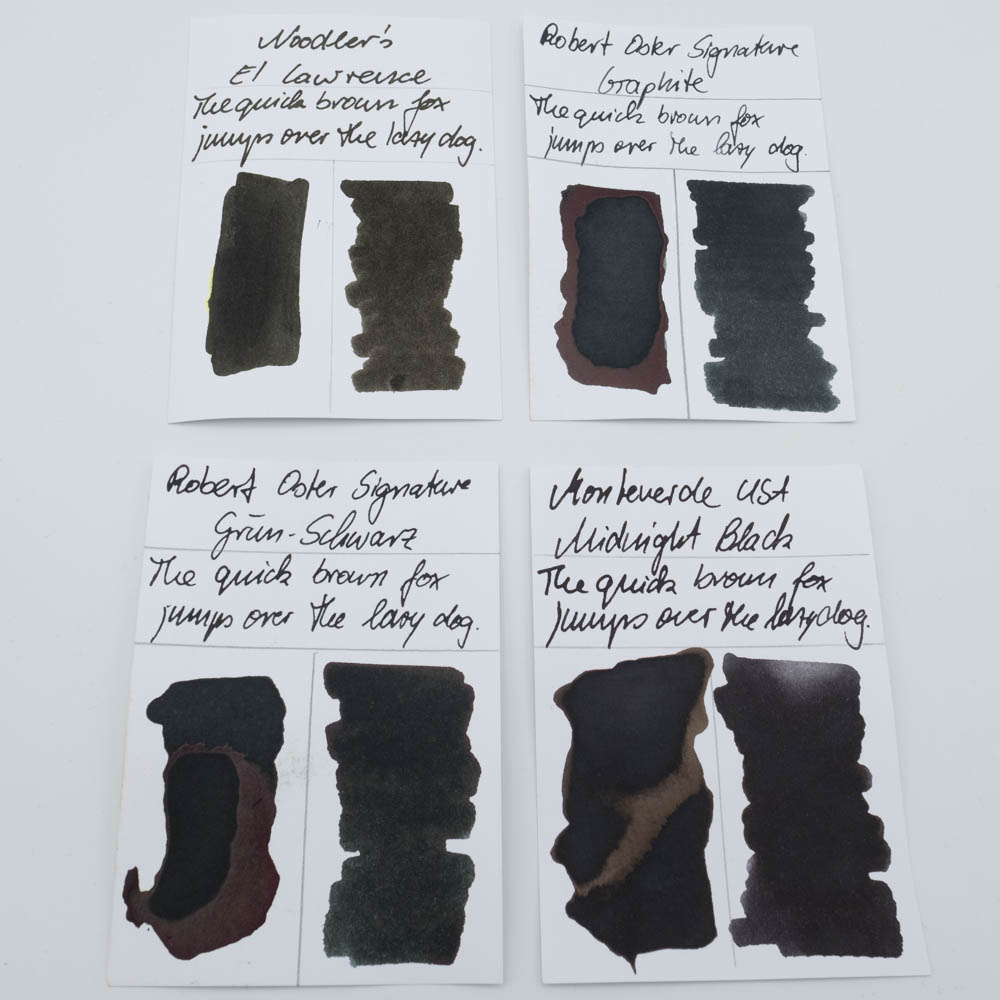 Noodler's
El Lawrence
The quick brown fox
jumps over the lazy dog.
Robert Oster Signature
Graphite
The quick brown fox
jumps over the lazy dog.
Robert Oster Signature
Grün-Schwarz
The quick brown fox
jumps over the lazy dog.
Monteverde USA
Midnight Black
The quick brown fox
jumps over the lazy dog.